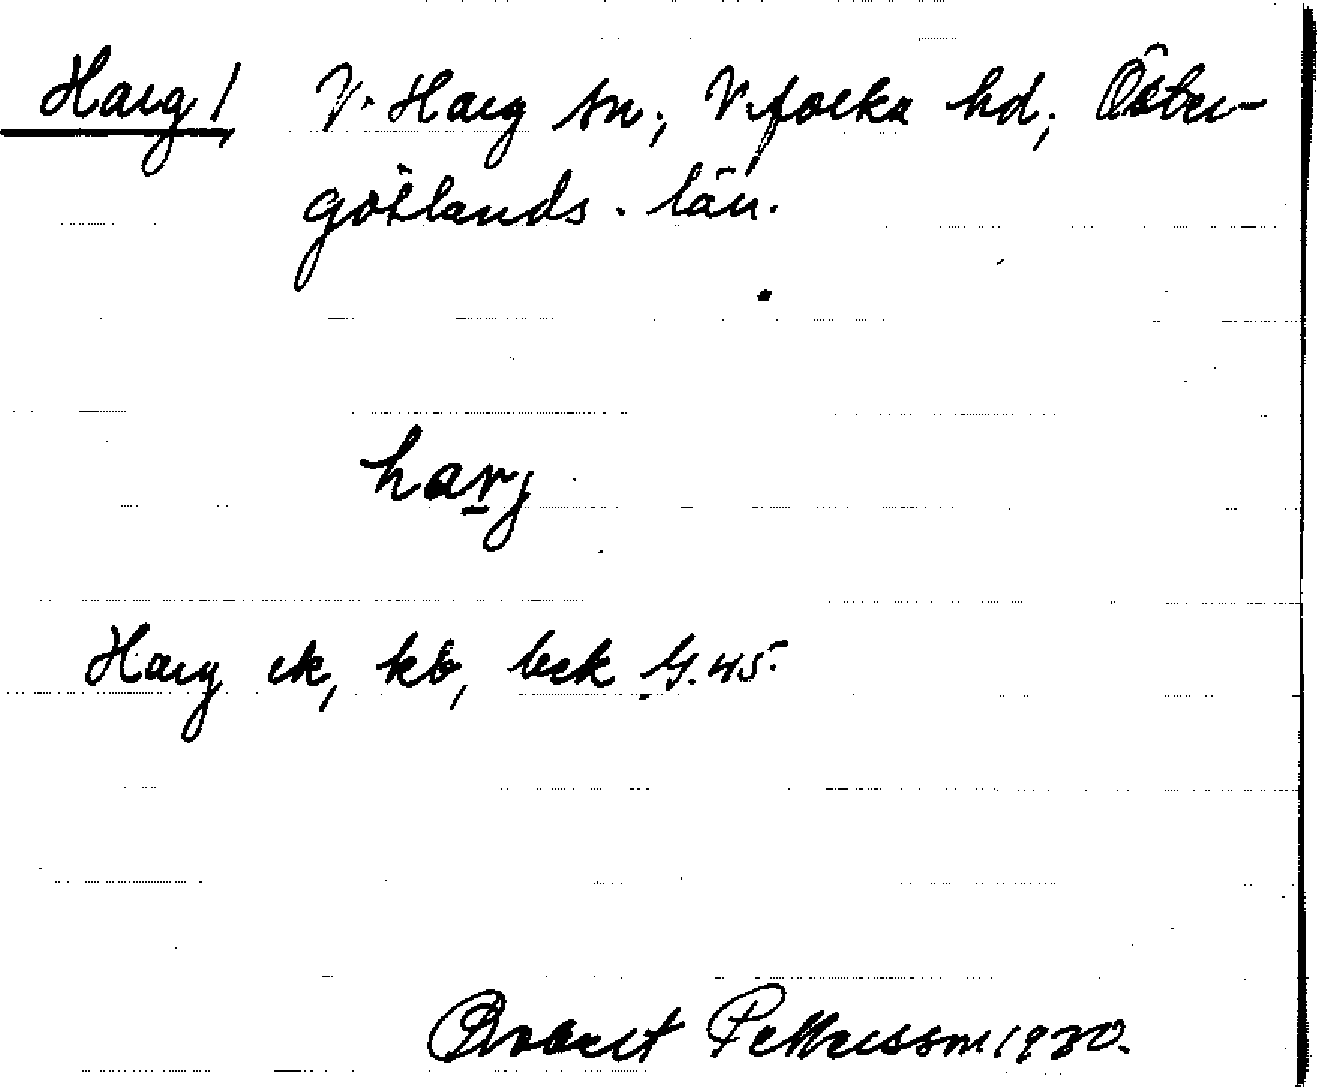 Harg / V. Harg sn, Vifolka hd, Öster-
götlands-län.
harj
Harg ek, kb, bek G. 45.
Pettersson 1930.